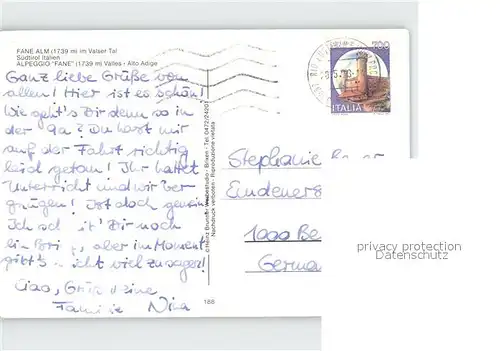 FANE ALM (1739 m) im Valser Tal
Südtirol Italien
ALPEGGIO "FANE" (1739 m) Valles - Alto Adige
Ganz liebe Grüße von
allen! Hier ist es schön!
Wie geht's Dir denn so in
der 9a? Du hast mir
auf der Fahrt richtig
leid getan! Ihr hattet
Unterricht und wir Ver-
gnügen! Ist doch gemein
Ich Dir noch
'n Bri , aber im Moment
gibt's nicht viel zu sagen!
Ciao, Grüß deine
Familie Nina
188
Nachdruck verboten - Riproduzione vietata
700
ITALIA
Stephanie
Eindener
1000 Be
Germa
privacy protection
Datenschutz